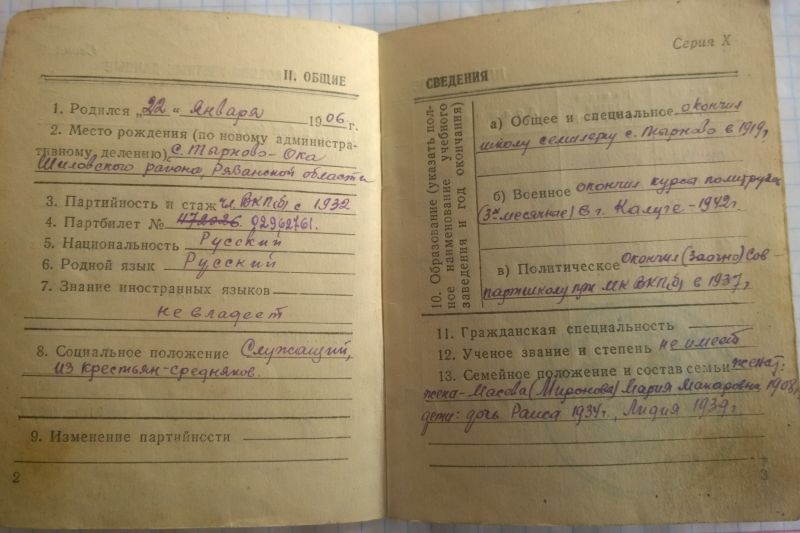 II. ОБЩИЕ
1. Родился „22" января 1906 г.
2. Место рождения (по новому администра-
тивному делению) с. Тырново-Ока
Шиловского района, Рязанской области
3. Партийность и стаж чл. ВКП(б) с 1932
4. Партбилет № 472026 02962761.
5. Национальность Русский
6. Родной язык Русский
7. Знание иностранных языков
не владеет
8. Социальное положение Служащий,
из крестьян-средняков.
9. Изменение партийности
2
Серия X
СВЕДЕНИЯ
10. Образование (указать пол-
ное наименование учебного
заведения и год окончания)
а) Общее и специальное окончил
школу семилетку с. Тырново в 1919г
б) Военное окончил курсы политрука
(3х месячные) в г. Калуге - 1942г.
в) Политическое окончил (заочно) Сов-
партшколу при МК ВКП(б) в 1937г.
11. Гражданская специальность
12. Ученое звание и степень не имеет
13. Семейное положение и состав семьи женат:
жена - Масова (Миронова) Мария Макаровна 1908г
дети: дочь Раиса 1934г, Лидия 1939г
3